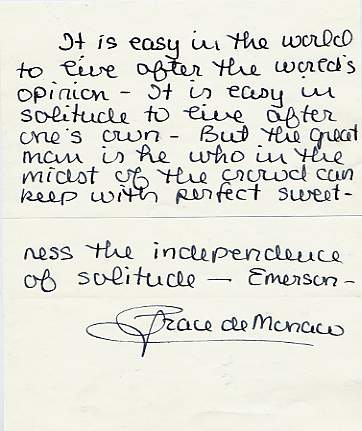 It is easy in the world
to live after the world's
opinion - It is easy in
solitude to live after
one's own - But the great
man is he who in the
midst of the crowd can
keep with perfect sweet-
ness the independence
of solitude — Emerson -
Grace de Monaco